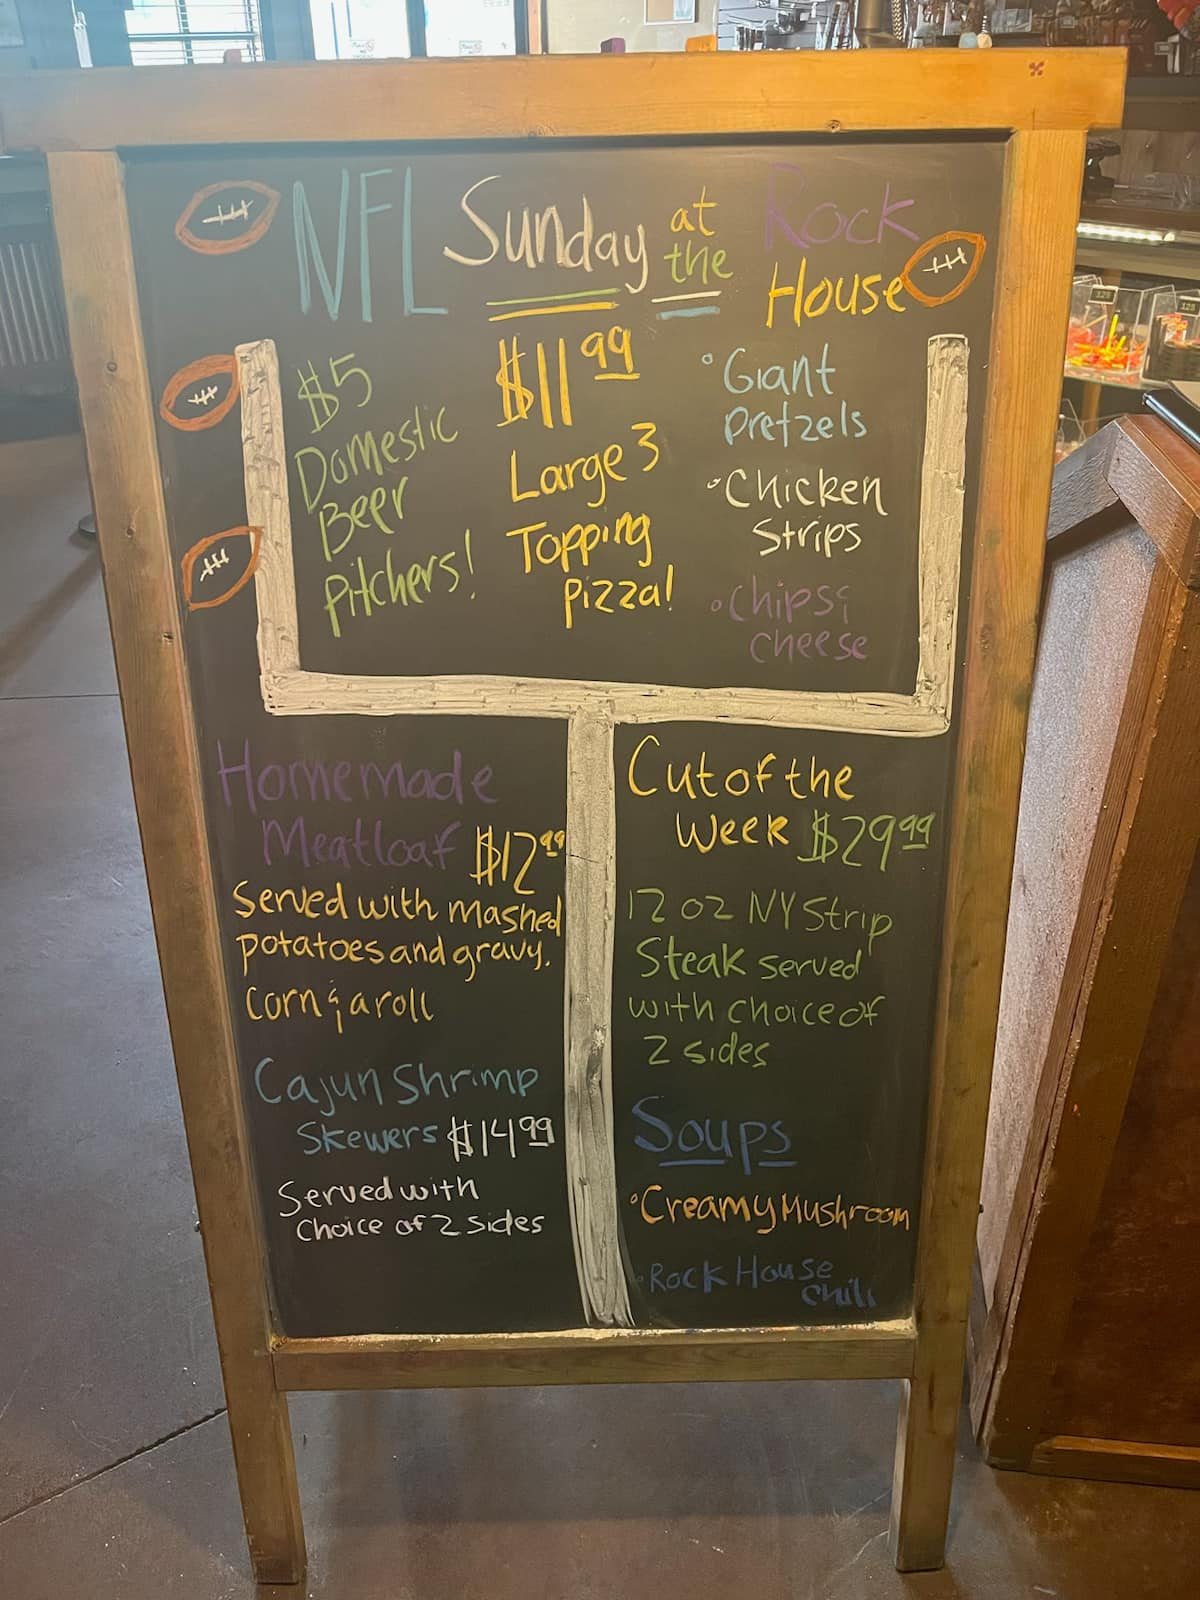 NFL Sunday at the Rock House
$5
Domestic
Beer
Pitchers!
$11 99
Large 3
Topping
pizza!
• Giant
Pretzels
• Chicken
Strips
• Chips &
Cheese
Homemade
Meatloaf $12 99
Served with mashed
potatoes and gravy.
Corn & a roll
Cajun Shrimp
Skewers $14 99
Served with
Choice of 2 sides
Cut of the
Week $29 99
12 oz NY Strip
Steak served
with choice of
2 sides
Soups
• Creamy Mushroom
• Rock House
Chili